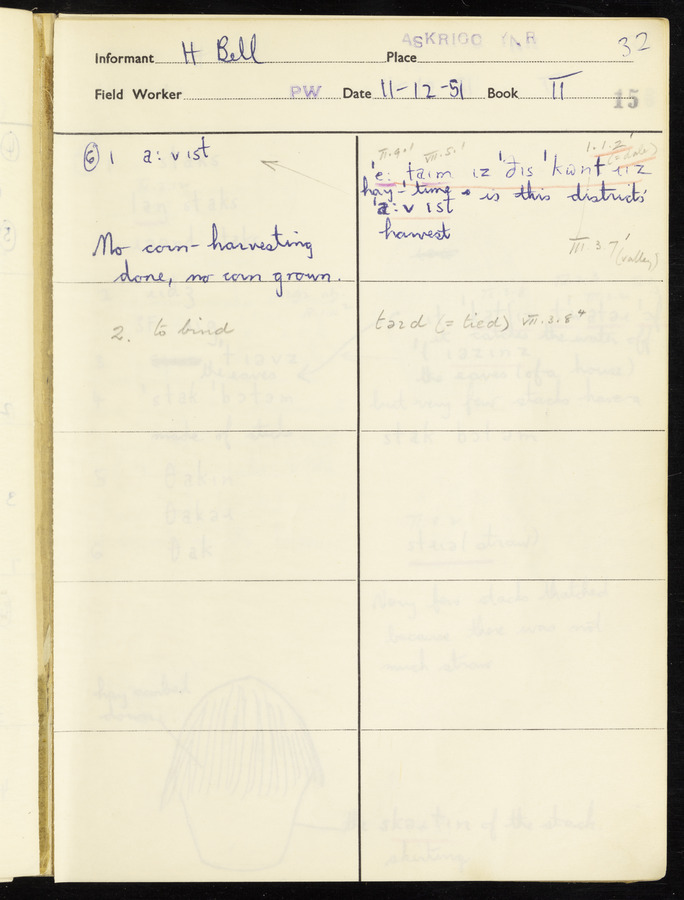 Informant H Bell Place ASKRIGG N.R 32
Field Worker PW Date 11-12-51 Book II 15
6 1 a:vɪst
II.9.1 VII.5.1 1.1.2 (= dale)
'e: taɪm ɪz 'ðɪs 'kʊnt
hay-time is this district's
'a:vɪst
harvest
III.3.7 (valley)
No corn-harvesting
done, no corn grown.
2. to bind
təɪd (= tied) VII.3.8